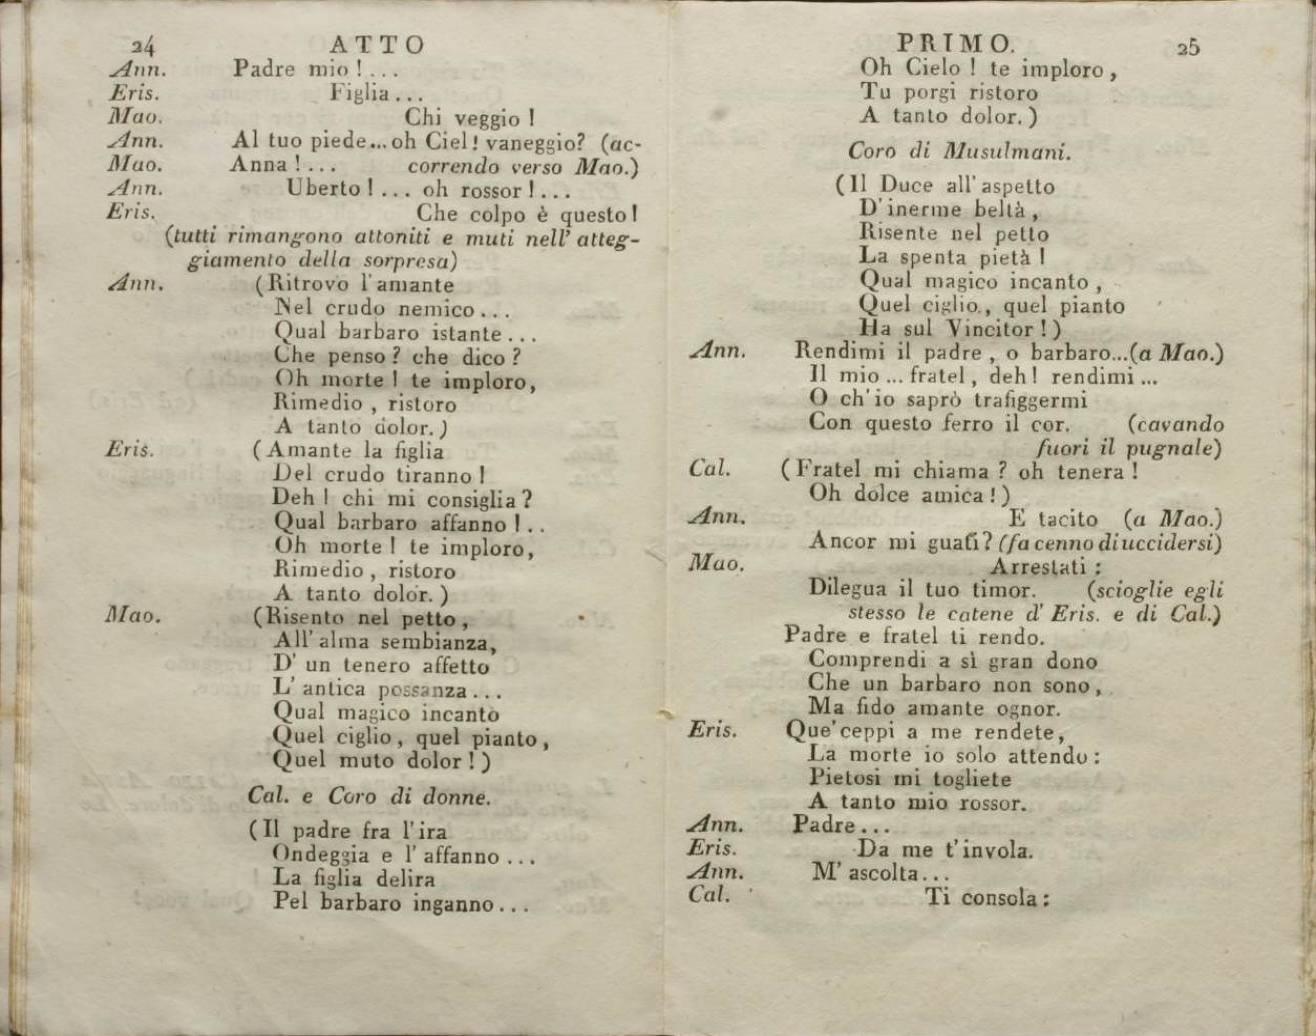 24 ATTO
Ann. Padre mio ! ...
Eris. Figlia ...
Mao. Chi veggio !
Ann. Al tuo piede... oh Ciel ! vaneggio? (ac-
Mao. Anna ! ... correndo verso Mao.)
Ann. Uberto ! ... oh rossor ! ...
Eris. Che colpo è questo !
(tutti rimangono attoniti e muti nell' atteg-
giamento della sorpresa)
Ann. (Ritrovo l'amante
Nel crudo nemico ...
Qual barbaro istante ...
Che penso ? che dico ?
Oh morte ! te imploro,
Rimedio , ristoro
A tanto dolor. )
Eris. (Amante la figlia
Del crudo tiranno !
Deh ! chi mi consiglia ?
Qual barbaro affanno ! . .
Oh morte ! te imploro,
Rimedio , ristoro
A tanto dolor. )
Mao. (Risento nel petto ,
All' alma sembianza,
D' un tenero affetto
L' antica possanza ...
Qual magico incanto
Quel ciglio , quel pianto ,
Quel muto dolor ! )
Cal. e Coro di donne.
(Il padre fra l'ira
Ondeggia e l' affanno ...
La figlia delira
Pel barbaro inganno ...
PRIMO. 25
Oh Cielo ! te imploro ,
Tu porgi ristoro
A tanto dolor. )
Coro di Musulmani.
(Il Duce all' aspetto
D' inerme beltà ,
Risente nel petto
La spenta pietà !
Qual magico incanto ,
Quel ciglio , quel pianto
Ha sul Vincitor ! )
Ann. Rendimi il padre , o barbaro... (a Mao.)
Il mio ... fratel , deh ! rendimi ...
O ch' io saprò trafiggermi
Con questo ferro il cor. (cavando
fuori il pugnale)
Cal. (Fratel mi chiama ? oh tenera !
Oh dolce amica ! )
Ann. E tacito (a Mao.)
Ancor mi guati ? (fa cenno di uccidersi)
Mao. Arrestati :
Dilegua il tuo timor. (scioglie egli
stesso le catene d' Eris. e di Cal.)
Padre e fratel ti rendo.
Comprendi a sì gran dono
Che un barbaro non sono ,
Ma fido amante ognor.
Eris. Que' ceppi a me rendete,
La morte io solo attendo :
Pietosi mi togliete
A tanto mio rossor.
Ann. Padre ...
Eris. Da me t' invola.
Ann. M' ascolta ...
Cal. Ti consola :